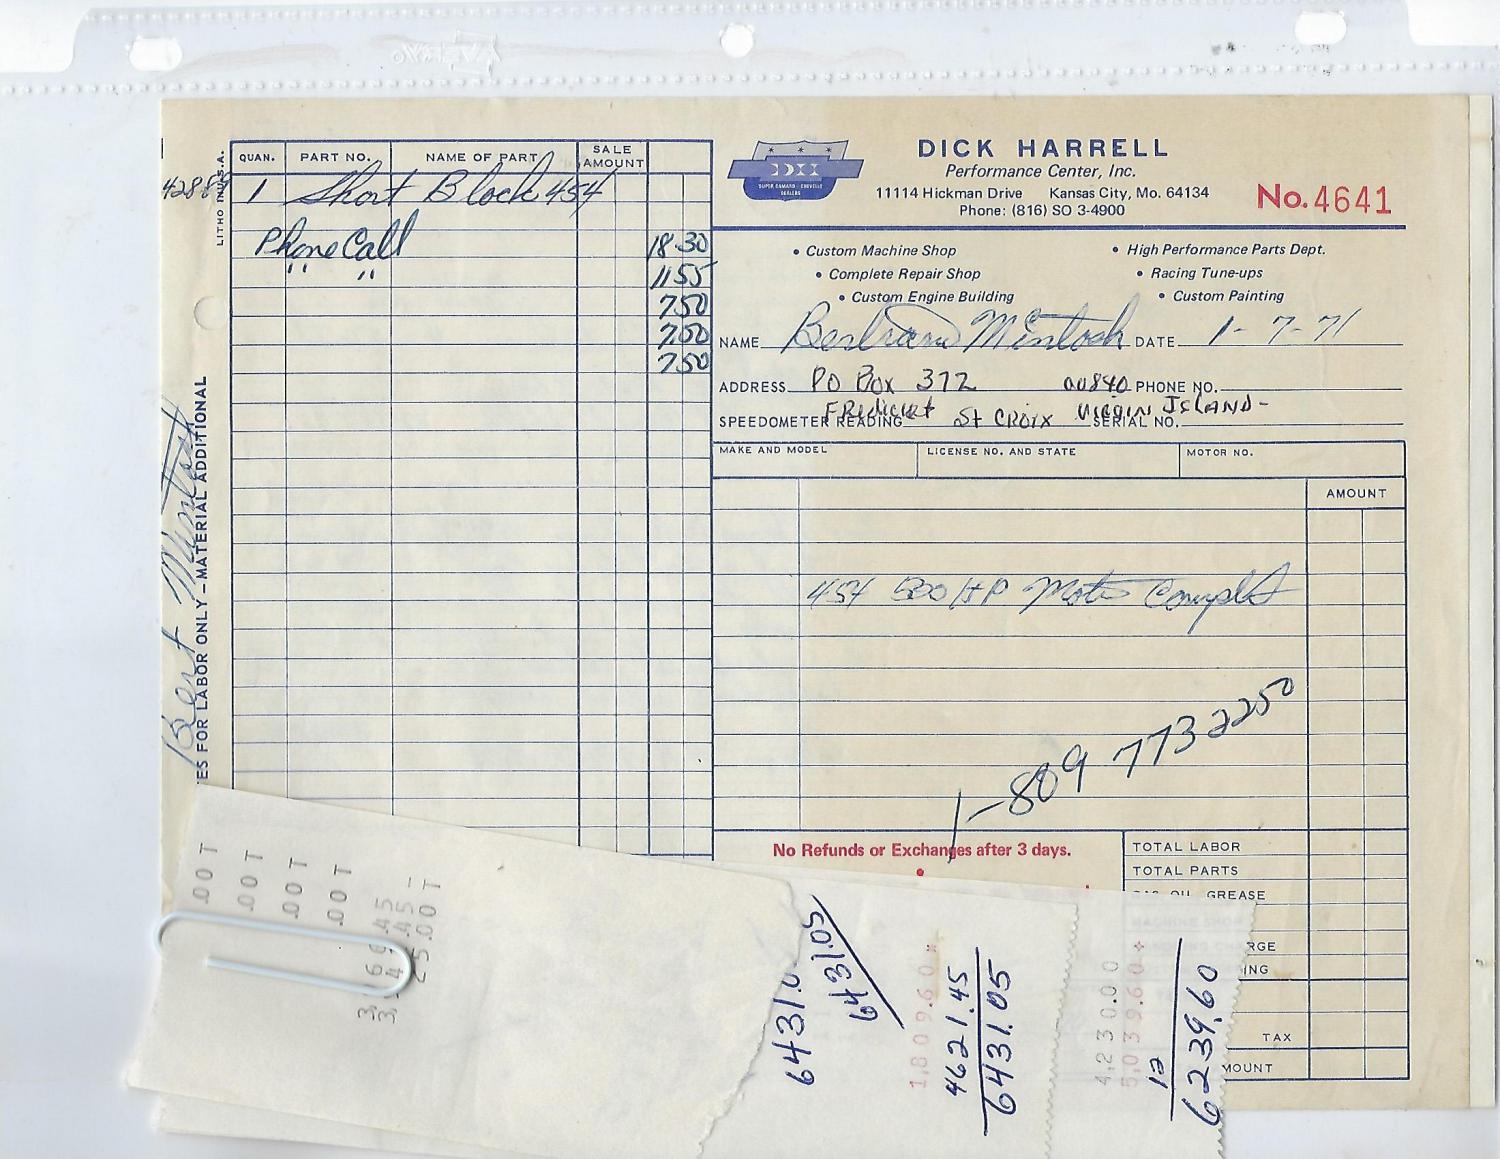 QUAN. PART NO. NAME OF PART SALE AMOUNT
1 Short Block 454
Phone Call 18.30
" " 11 55
7 50
7.50
7 50
LITHO IN U.S.A.
ES FOR LABOR ONLY – MATERIAL ADDITIONAL
Bert Mintosh
DXH
SUPER CAMARO - CHEVELLE
DEALERS
DICK HARRELL
Performance Center, Inc.
11114 Hickman Drive Kansas City, Mo. 64134
Phone: (816) SO 3-4900
No. 4641
• Custom Machine Shop • High Performance Parts Dept.
• Complete Repair Shop • Racing Tune-ups
• Custom Engine Building • Custom Painting
NAME Bertram Mintosh DATE 1-7-71
ADDRESS PO Box 372 00840 PHONE NO.
SPEEDOMETER READING St CROIX VIRGIN ISLAND- SERIAL NO.
MAKE AND MODEL LICENSE NO. AND STATE MOTOR NO.
AMOUNT
454 500 HP Motor Complet
1-809 773 2250
No Refunds or Exchanges after 3 days.
TOTAL LABOR
TOTAL PARTS
GAS, OIL, GREASE
RGE
ING
TAX
MOUNT
.00 T
.00 T
.00 T
.00 T
25.00 T
6431.0
6431.05
1,809.60 *
4621.45
6431.05
4,230.00
5,039.60 +
12
6239.60